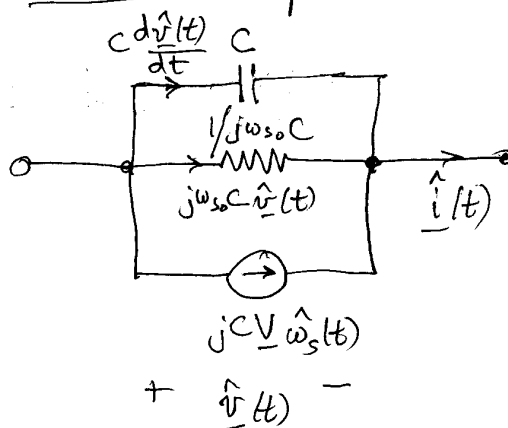 C d\hat{v}(t)/dt
C
1/jω_{so}C
jω_{so}C \hat{v}(t)
\hat{i}(t)
jC V \hat{ω}_s(t)
+ \hat{v}(t) −